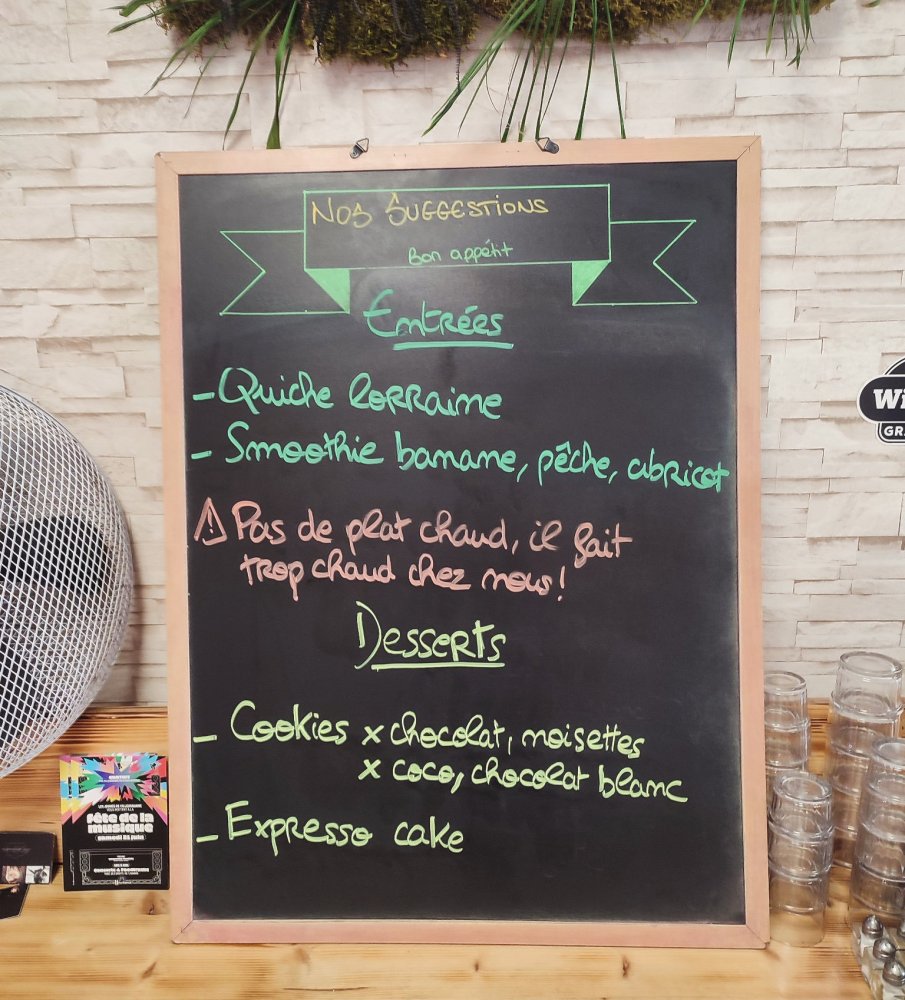 Nos Suggestions
Bon appétit
Entrées
- Quiche lorraine
- Smoothie banane, pêche, abricot
⚠ Pas de plat chaud, il fait
trop chaud chez nous!
Desserts
- Cookies x chocolat, noisettes
x coco, chocolat blanc
- Expresso cake
fête de la
musique
samedi 21 juin
Wi
GR